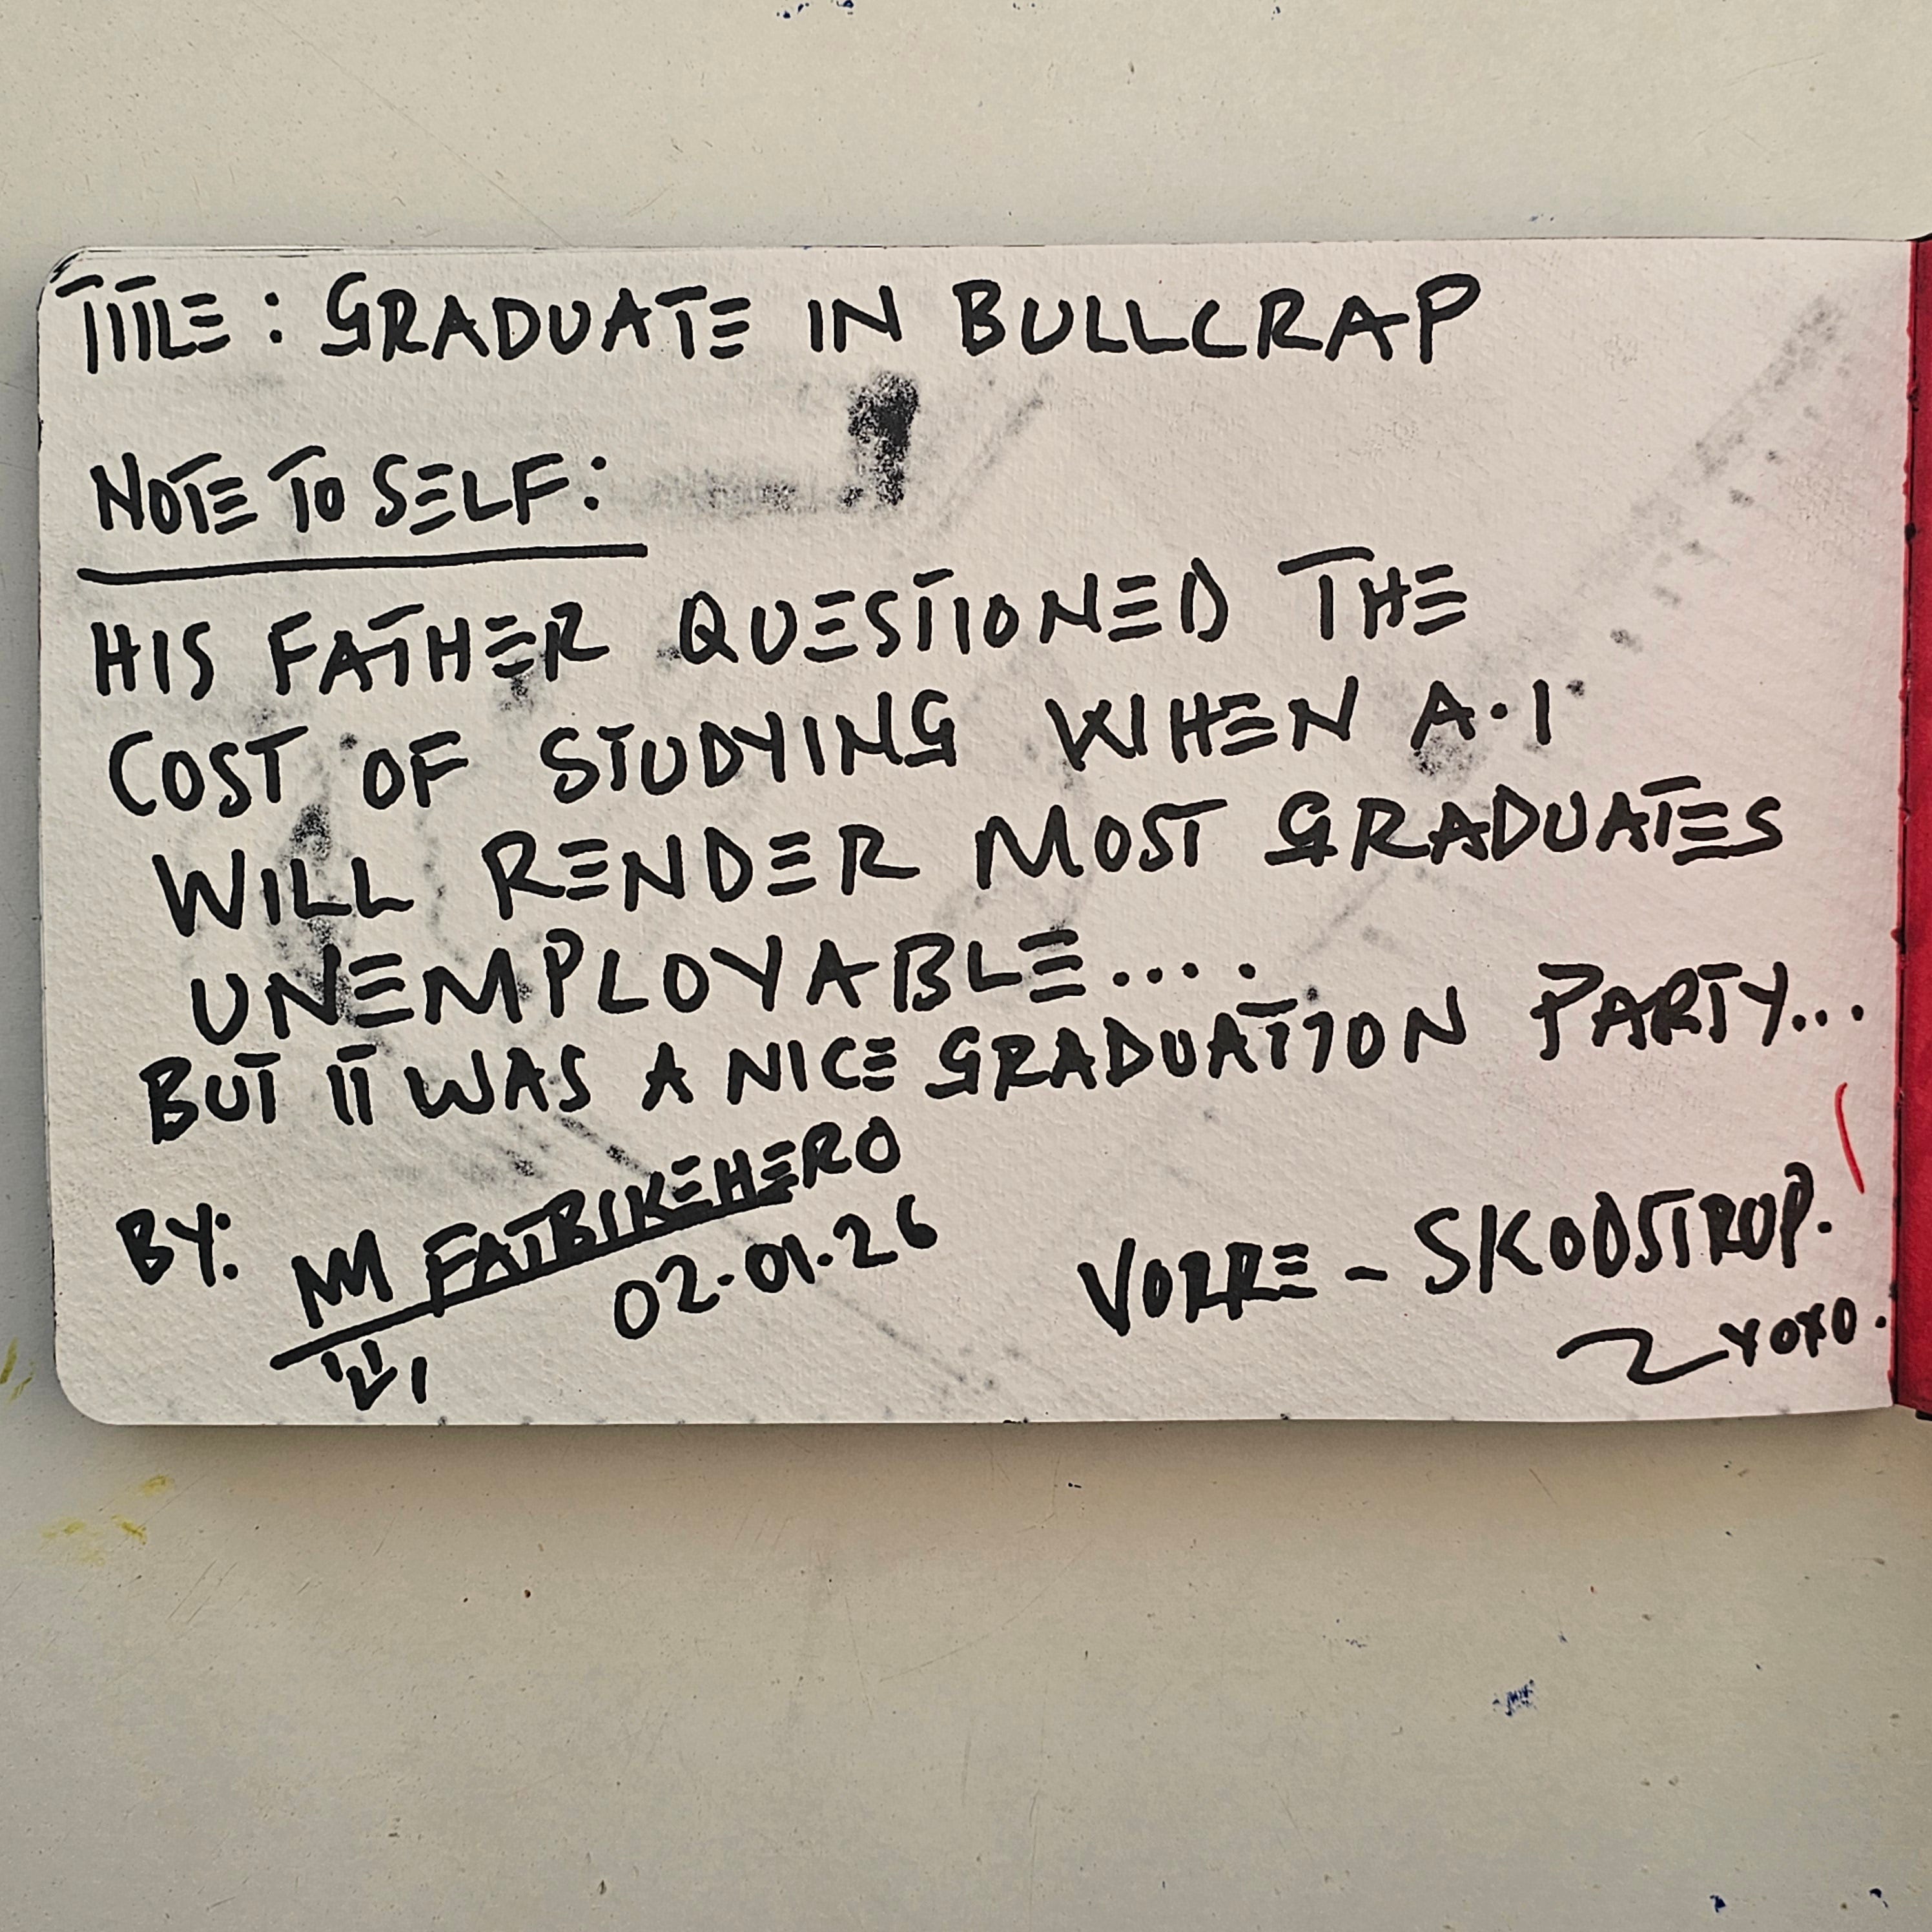 TITLE: GRADUATE IN BULLCRAP
NOTE TO SELF:
HIS FATHER QUESTIONED THE
COST OF STUDYING WHEN A.I
WILL RENDER MOST GRADUATES
UNEMPLOYABLE....
BUT IT WAS A NICE GRADUATION PARTY...
BY: FATBIKEHERO
02-01-26
VORRE - SKODSTRUP.
XOXO.